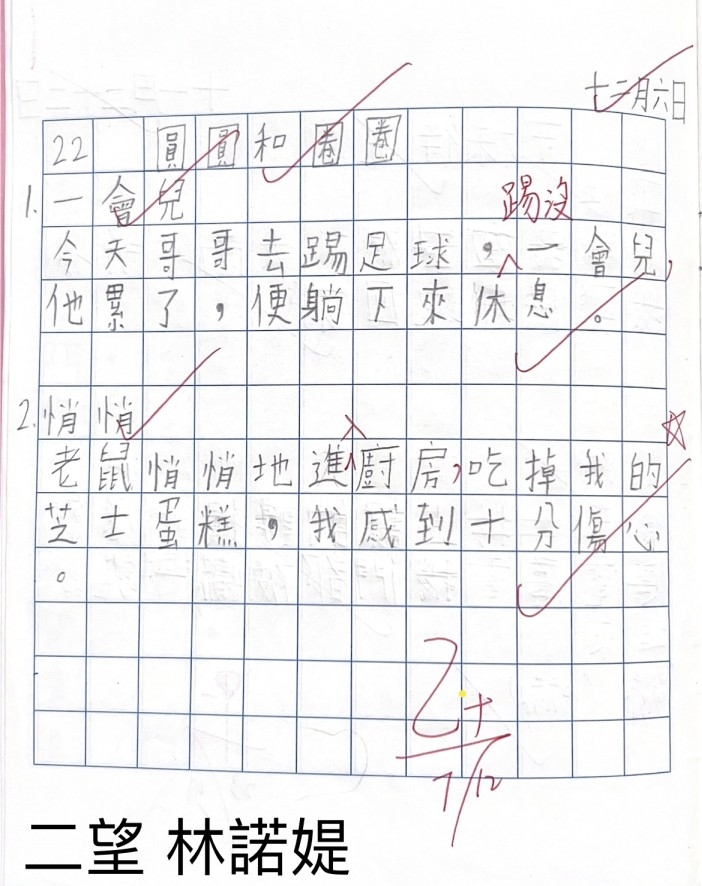 十二月六日
22 圓圓和圈圈
1. 一會兒
踢沒
今天哥哥去踢足球，一會兒，
他累了，便躺下來休息。
2. 悄悄
入
老鼠悄悄地進廚房，吃掉我的
芝士蛋糕，我感到十分傷心
。
乙+
7/12
二望 林諾媞